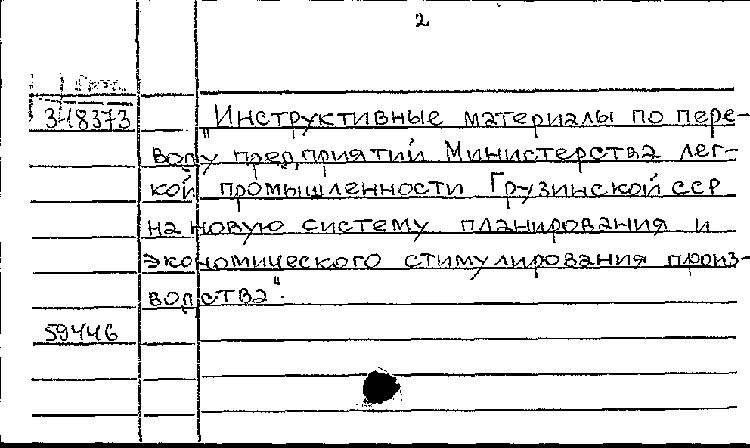 2
348373 "Инструктивные материалы по пере-
воду предприятий Министерства лег-
кой промышленности Грузинской сср
на новую систему планирования и
экономического стимулирования произ-
водства".
59446